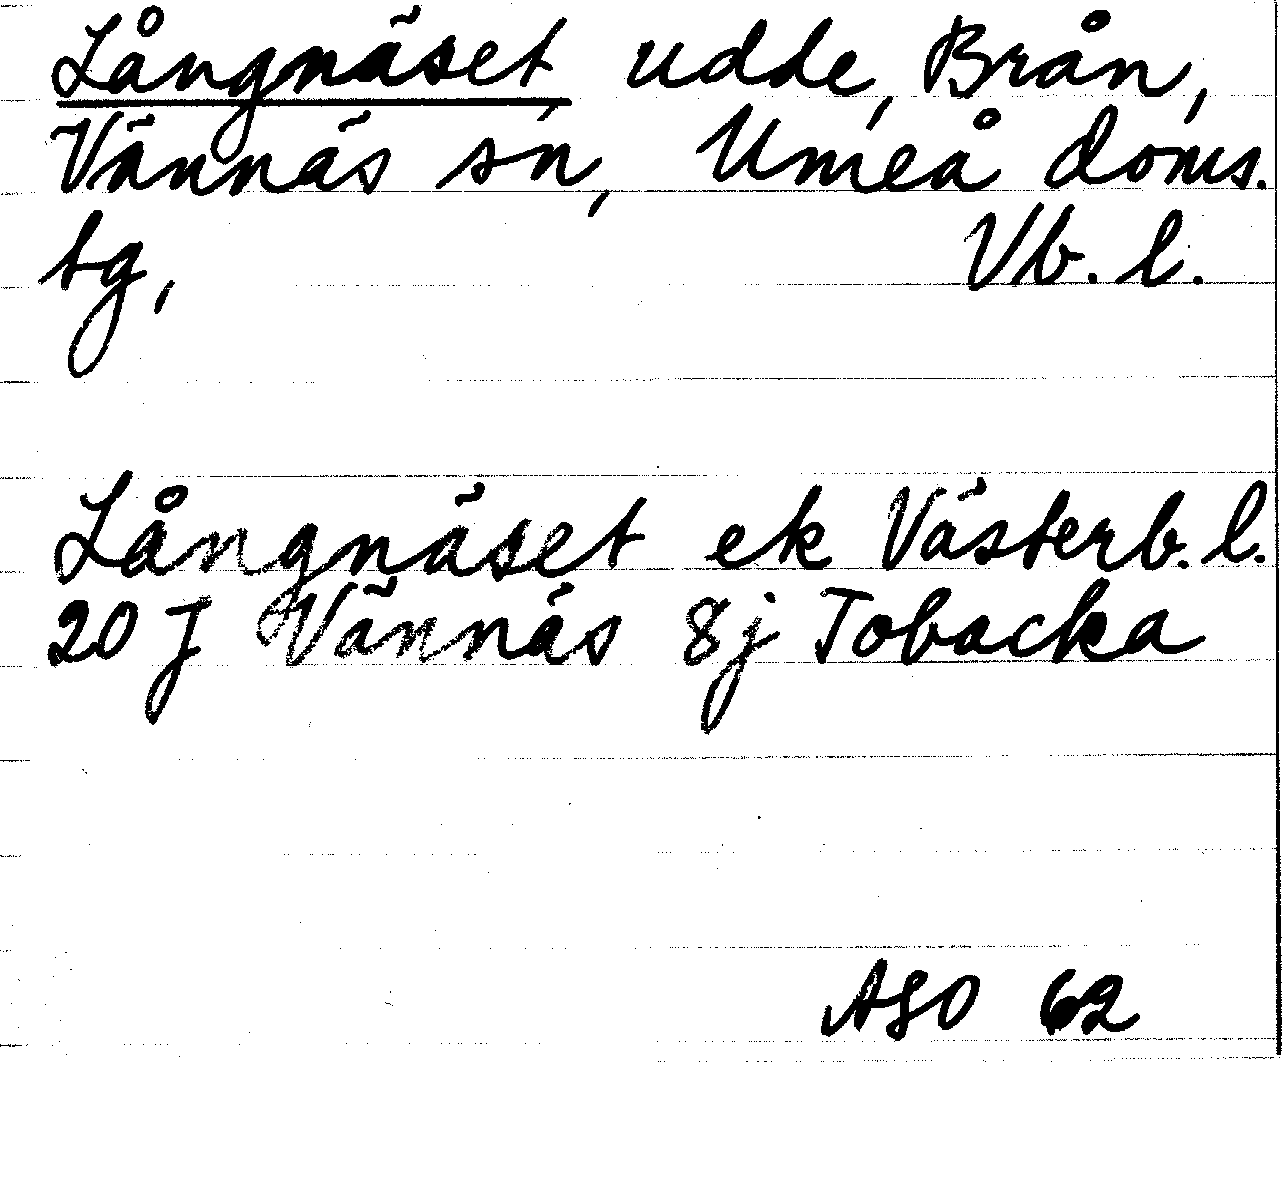 Långnäset, udde, Brån,
Vännäs sn, Umeå doms.
tg, Vb. l.
Långnäset ek Västerb. l.
20 J Vännäs 8j Tobacka
ASO 62